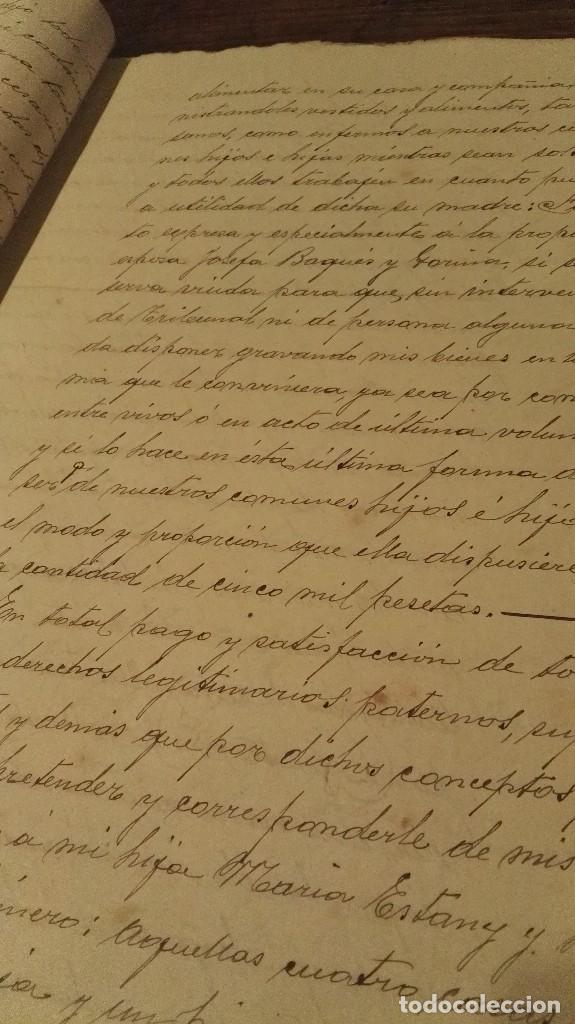 alimentar en su casa y compañia,
nistrandoles vestidos y alimentos, ta
sanos, como enfermos a nuestros co
nes hijos e hijas mientras sean sol
y todos ellos trabajen en cuanto pu
a utilidad de dicha su madre:
to expresa y especialmente á la prop
esposa Josefa Baqués y si
serva viuda para que, sin interve
de Tribunal ni de persona alguna
da disponer gravando mis bienes en
mia que le conviniera, ya sea por con
entre vivos ó en acto de última volun
y si lo hace en ésta última forma á
ser de nuestros comunes hijos é hijas
el modo y proporción que ella dispusiere
la cantidad de cinco mil pesetas.
En total pago y satisfacción de to
derechos legitimarios paternos, sup
y demás que por dichos conceptos,
pretender y corresponderle de mis
á mi hija Maria Estany y
nero; aquellas cuatro
y un
todocoleccion